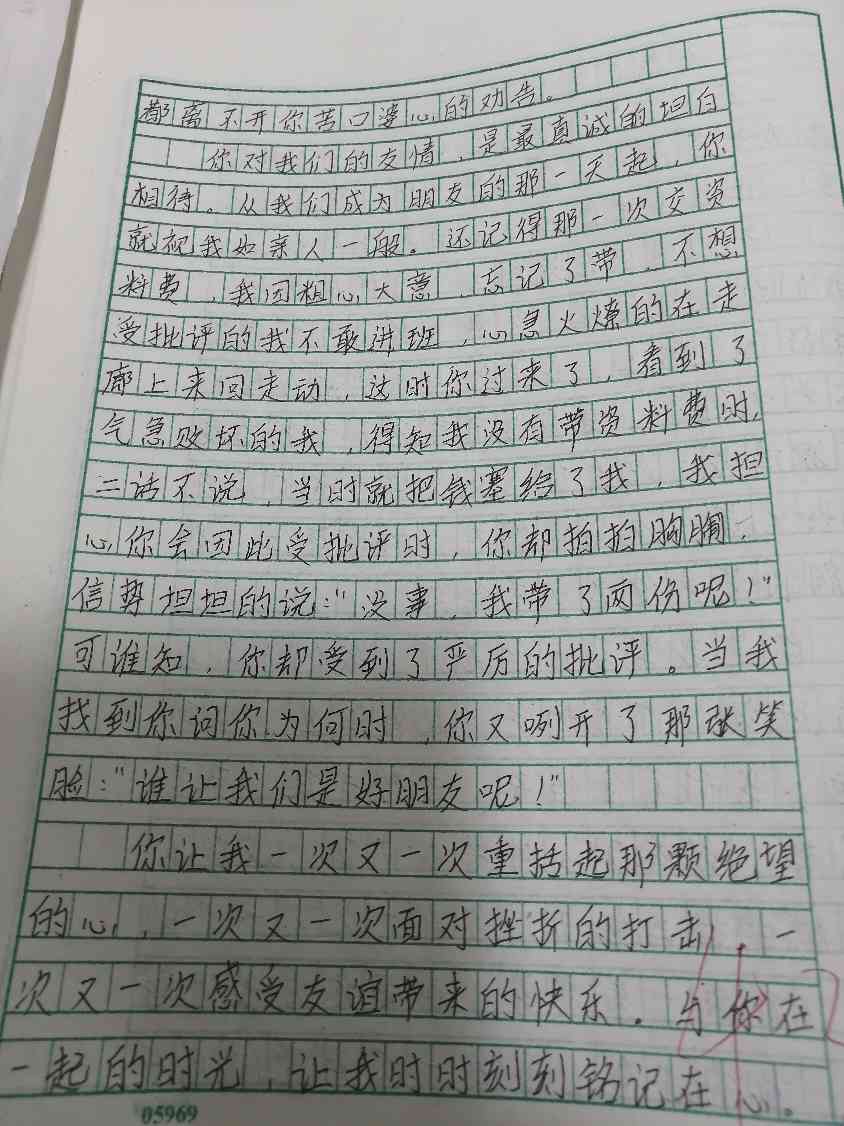 都离不开你苦口婆心的劝告。
你对我们的友情，是最真诚的坦白
相待。从我们成为朋友的那一天起，你
就视我如亲人一般。还记得那一次交资
料费，我因粗心大意，忘记了带，不想
受批评的我不敢进班，心急火燎的在走
廊上来回走动，这时你过来了，看到了
气急败坏的我，得知我没有带资料费时，
二话不说，当时就把钱塞给了我，我担
心你会因此受批评时，你却拍拍胸脯，
信势坦坦的说："没事，我带了两份呢！"
可谁知，你却受到了严厉的批评。当我
找到你问你为何时，你又咧开了那张笑
脸："谁让我们是好朋友呢！"
你让我一次又一次重括起那颗绝望
的心，一次又一次面对挫折的打击，一
次又一次感受友谊带来的快乐。与你在
一起的时光，让我时时刻刻铭记在心。
05969